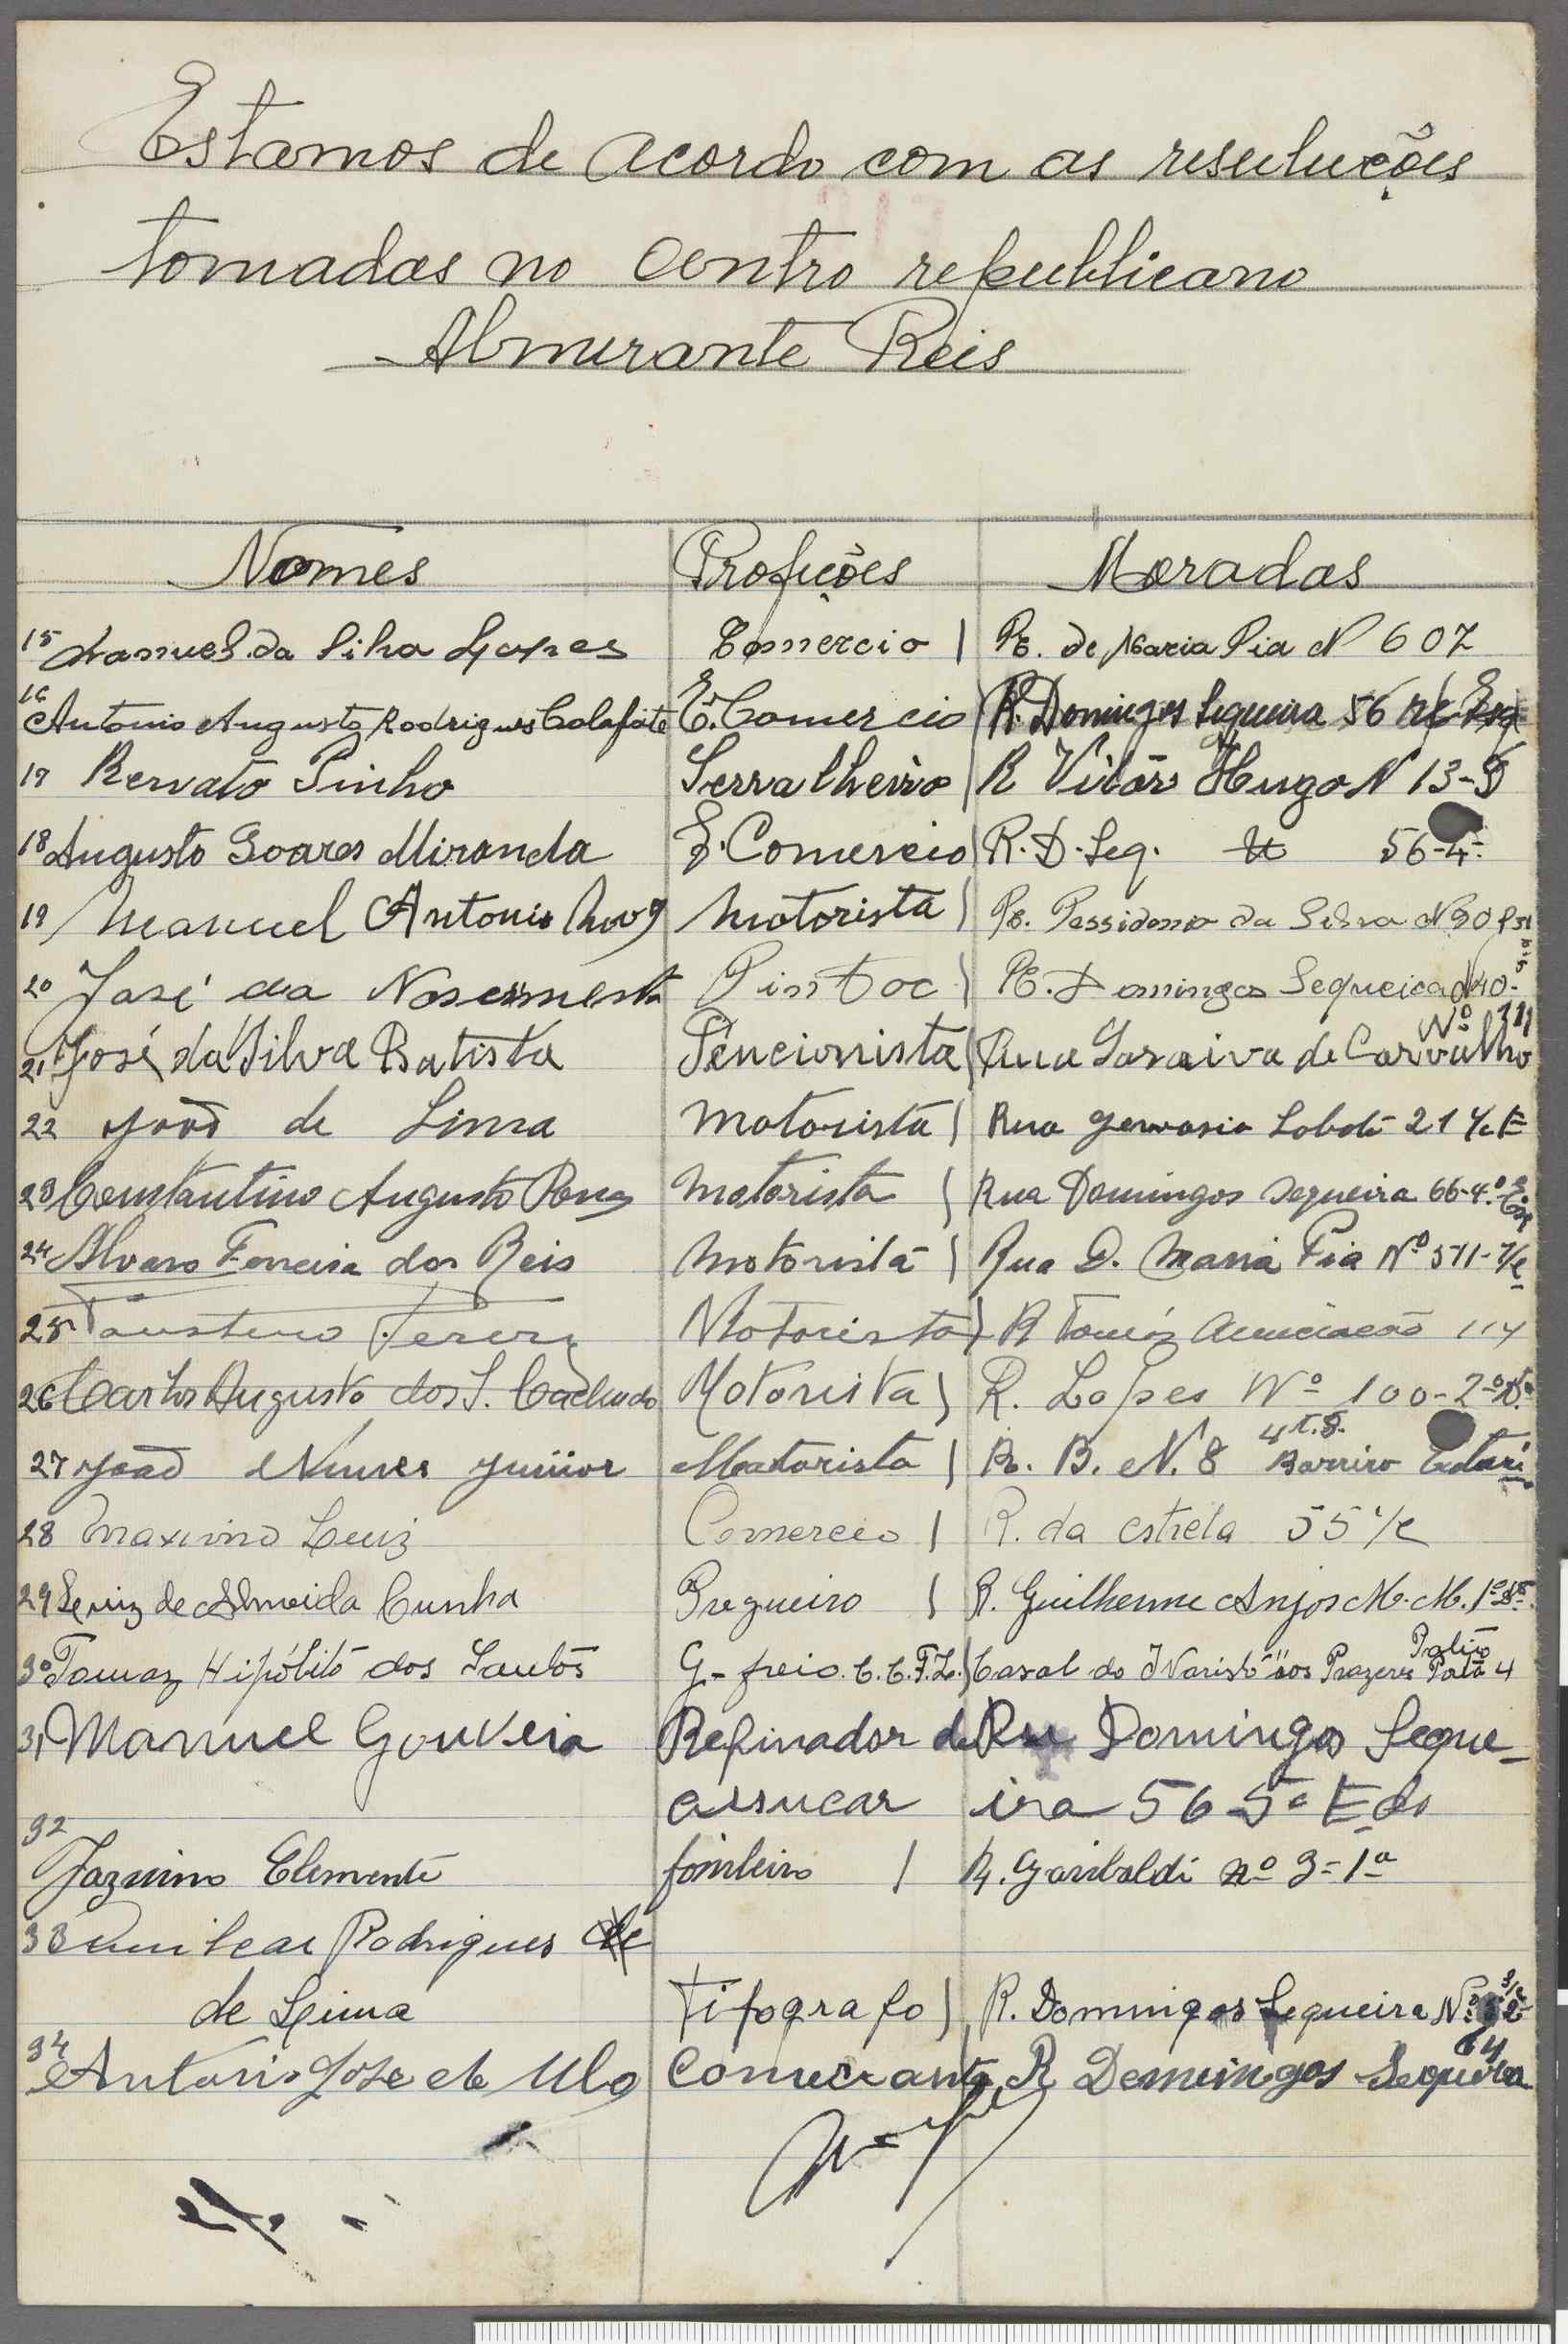 Estamos de acordo com as resuluções
tomadas no centro republicano
Almirante Reis
Nomes Profições Moradas
15 Manuel da Silva Lopes Comercio R. de Maria Pia N 607
16 Antonio Augusto Rodrigues Calafate E. Comercio R. Domingos Sequeira 56 r/c Esq
17 Renato Pinho Serralheiro R Vitor Hugo N 13-
18 Augusto Soares Miranda E. Comercio R. D. Seq. 56-4º
19 Manuel Antonio Motorista R. Possidonio da Silva N 90
20 José da Nascimento Pintor R. Domingos Sequeira N 40-
21 José da Silva Batista Pencionista Rua Saraiva de Carvalho Nº 311
22 João de Lima Motorista Rua Gervasio Lobato 21 r/c E
23 Constantino Augusto Motorista Rua Domingos Sequeira 66-4º Esq
24 Alvaro Ferreira dos Reis Motorista Rua D. Maria Pia Nº 511-r/c
25 Faustino Motorista R Tomáz 114
26 Carlos Augusto dos S. Cachudo Motorista R. Lopes Nº 100-2º D.
27 João Nunes Junior Motorista R. B. N. 8 Barriro
28 Maximo Luiz Comercio R. da estrela 55 r/c
29 Luiz de Almeida Cunha Pregueiro R. Guilherme Anjos M. M. 1º
30 Tomaz Hipólito dos Santos G-freio. C. C. F. L. Casal do aos Prazeres 4
31 Manuel Gouveia Refinador de Ru Domingos Seque-
assucar ira 56 5º Edo
32
Jazmino Clemente R. Garibaldi nº 3=1º
33 Rodrigues de
de Lima Tipografo R. Domingos Sequeira Nº
34 Antonio José de Comerciante R Domingos Sequeira 64